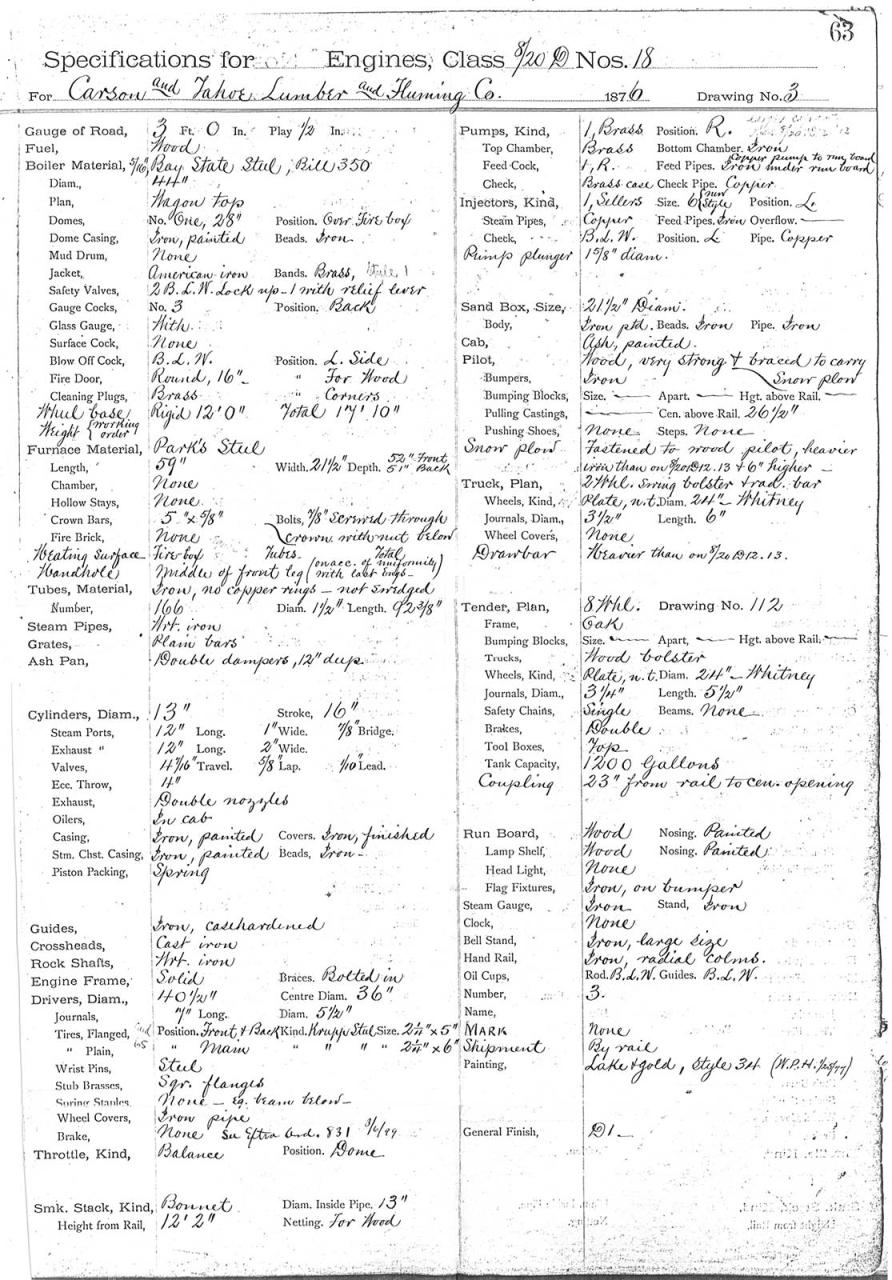 63
Specifications for Engines, Class 8/20 D Nos. 18
For Carson and Tahoe Lumber and Fluming Co. 1876 Drawing No. 3
Gauge of Road, 3 Ft. 0 In. Play 1/2 In.
Fuel, Wood
Boiler Material, 5/16" Bay State Steel, Bill 350
Diam., 44"
Plan, Wagon top
Domes, No. One, 28" Position. Over Fire box
Dome Casing, Iron, painted Beads. Iron
Mud Drum, None
Jacket, American iron Bands. Brass,
Safety Valves, 2 B.L.W. Lock up - 1 with relief lever
Gauge Cocks, No. 3 Position. Back
Glass Gauge, With
Surface Cock, None
Blow Off Cock, B.L.W. Position. L. Side
Fire Door, Round, 16" " For Wood
Cleaning Plugs, Brass " Corners
Wheel base Rigid 12' 0" Total 17' 10"
Weight { working order
Furnace Material, Park's Steel
Length, 59" Width. 21 1/2" Depth. 52" Front 51" Back
Chamber, None
Hollow Stays, None
Crown Bars, 5" x 5/8" Bolts, 7/8" Screwed through
Fire Brick, None crown with nut below
Heating Surface Fire box Tubes. Total
Handhole Middle of front leg (on acc. of uniformity with last engs.)
Tubes, Material, Iron, no copper rings - not swedged
Number, 166 Diam. 1 1/2" Length. 92 3/8"
Steam Pipes, Wrt. iron
Grates, Plain bars
Ash Pan, Double dampers, 12" deep
Cylinders, Diam., 13" Stroke, 16"
Steam Ports, 12" Long. 1" Wide. 7/8" Bridge.
Exhaust " 12" Long. 2" Wide.
Valves, 4 7/16" Travel. 5/8" Lap. 1/10" Lead.
Ecc. Throw, 4"
Exhaust, Double nozzles
Oilers, In cab
Casing, Iron, painted Covers. Iron, finished
Stm. Chst. Casing, Iron, painted Beads, Iron
Piston Packing, Spring
Guides, Iron, casehardened
Crossheads, Cast iron
Rock Shafts, Wrt. iron
Engine Frame, Solid Braces. Bolted in
Drivers, Diam., 40 1/2" Centre Diam. 36"
Journals, 7" Long. Diam. 5 1/2"
Tires, Flanged, Position. Front & Back Kind. Krupp Steel Size. 2 1/4" x 5"
" Plain, " Main " " " " 2 1/4" x 6"
Wrist Pins, Steel
Stub Brasses, Sqr. flanges
Spring Staples, None - eq. beam below
Wheel Covers, Iron pipe
Brake, None See Extra Ord. 831
Throttle, Kind, Balance Position. Dome
Smk. Stack, Kind, Bonnet Diam. Inside Pipe. 13"
Height from Rail, 12' 2" Netting. For Wood
Pumps, Kind, 1, Brass Position. R.
Top Chamber, Brass Bottom Chamber. Iron
Feed Cock, 1, R. Feed Pipes. Copper pump to run board Iron under run board
Check, Brass case Check Pipe. Copper
Injectors, Kind, 1, Sellers Size. 6 (new Style Position. L.
Steam Pipes, Copper Feed Pipes. Iron Overflow. —
Check, B.L.W. Position. L Pipe. Copper
Pump plunger 1 5/8" diam.
Sand Box, Size, 21 1/2" Diam.
Body, Iron ptd. Beads. Iron Pipe. Iron
Cab, Ash, painted.
Pilot, Wood, very strong & braced to carry
Bumpers, Iron Snow plow
Bumping Blocks, Size. — Apart. — Hgt. above Rail. —
Pulling Castings, — Cen. above Rail. 26 1/2"
Pushing Shoes, None Steps. None
Snow plow Fastened to wood pilot, heavier
iron than on 8/20 D 12.13 & 6" higher
Truck, Plan, 2 Whl. Swing bolster & rad. bar
Wheels, Kind, Plate, n.t. Diam. 24" Whitney
Journals, Diam., 3 1/2" Length. 6"
Wheel Covers, None
Drawbar Heavier than on 8/20 D 12.13.
Tender, Plan, 8 Whl. Drawing No. 112
Frame, Oak
Bumping Blocks, Size. — Apart, — Hgt. above Rail. —
Trucks, Wood bolster
Wheels, Kind, Plate, n.t. Diam. 24" Whitney
Journals, Diam., 3 1/4" Length. 5 1/2"
Safety Chains, Single Beams. None
Brakes, Double
Tool Boxes, Top
Tank Capacity, 1200 Gallons
Coupling 23" from rail to cen. opening
Run Board, Wood Nosing. Painted
Lamp Shelf, Wood Nosing. Painted
Head Light, None
Flag Fixtures, Iron, on bumper
Steam Gauge, Iron Stand, Iron
Clock, None
Bell Stand, Iron, large size
Hand Rail, Iron, radial colms.
Oil Cups, Rod. B.L.W. Guides. B.L.W.
Number, 3.
Name,
Mark None
Shipment By rail
Painting, Lake & gold, Style 34 (W.P.H. 1/25/77)
General Finish, D1